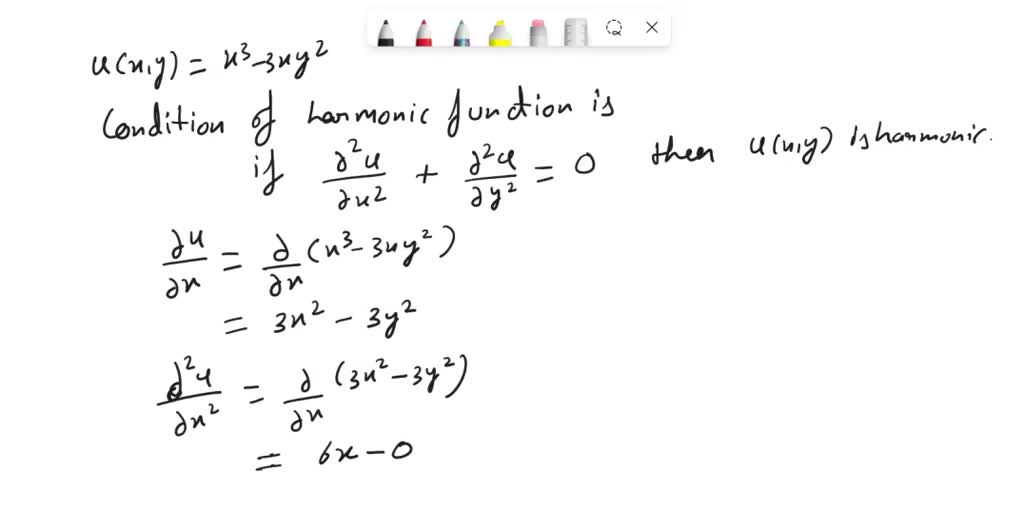 u(x,y) = x³-3xy²
Condition of harmonic function is
if ∂²u/∂x² + ∂²u/∂y² = 0 then u(x,y) is harmonic.
∂u/∂x = ∂/∂x (x³-3xy²)
= 3x² - 3y²
∂²u/∂x² = ∂/∂x (3x²-3y²)
= 6x-0